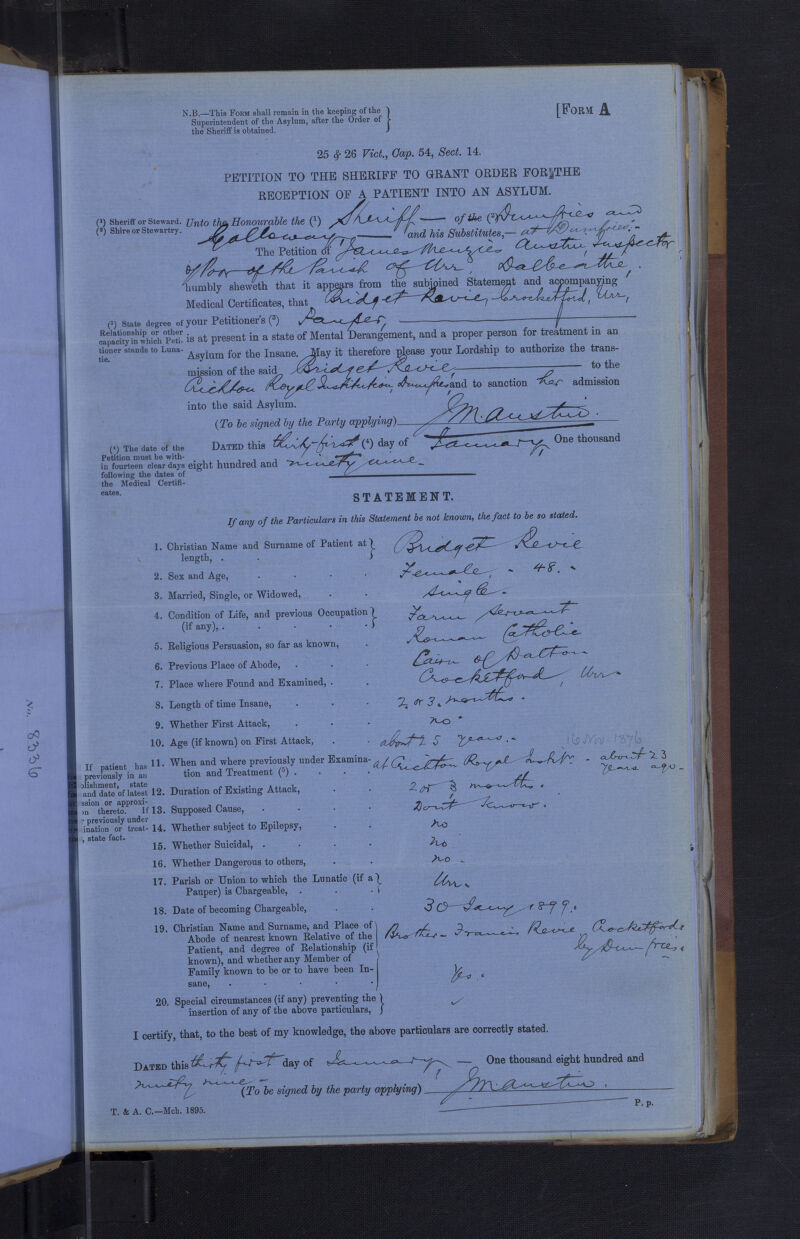 N.B.—This Form shall remain in the keeping of the
Superintendent of the Asylum, after the Order of
the Sheriff is obtained.
[Form A
25 & 26 Vict., Cap. 54, Sect. 14.
PETITION TO THE SHERIFF TO GRANT ORDER FOR THE
RECEPTION OF A PATIENT INTO AN ASYLUM.
(¹) Sheriff or Steward.
(²) Shire or Stewartry.
Unto the Honourable the (¹) Sheriff — of the (²) Dumfries and
Galloway, — and his Substitutes,— at Dumfries.
The Petition of James Menzies Austin, Inspector
of Poor of the Parish of Urr, Dalbeattie,
humbly sheweth that it appears from the subjoined Statement and accompanying
Medical Certificates, that Bridget Revie, Crocketford, Urr,
(³) State degree of
Relationship or other
capacity in which Peti-
tioner stands to Luna-
tic.
your Petitioner's (³) Pauper,
is at present in a state of Mental Derangement, and a proper person for treatment in an
Asylum for the Insane. May it therefore please your Lordship to authorize the trans-
mission of the said Bridget Revie, — to the
Crichton Royal Institution, Dumfries and to sanction her admission
into the said Asylum.
(To be signed by the Party applying) JM. Austin.
(⁴) The date of the
Petition must be with-
in fourteen clear days
following the dates of
the Medical Certifi-
cates.
Dated this thirty-first (⁴) day of January, One thousand
eight hundred and ninety nine.
STATEMENT.
If any of the Particulars in this Statement be not known, the fact to be so stated.
1. Christian Name and Surname of Patient at
length, . . Bridget Revie
2. Sex and Age, . . . . Female, - 48. -
3. Married, Single, or Widowed, . . Single.
4. Condition of Life, and previous Occupation
(if any), . . . . . Farm Servant
5. Religious Persuasion, so far as known, . Roman Catholic
6. Previous Place of Abode, . . . Cairn of Dalton
7. Place where Found and Examined, . . Crocketford, Urr.
8. Length of time Insane, . . . 2 or 3 months.
9. Whether First Attack, . . . no.
10. Age (if known) on First Attack, . . about 25 years.
16 Nov. 1876
If patient has
previously in an
blishment, state
and date of latest
ssion or approxi-
on thereto. If
previously under
ination or treat-
, state fact.
11. When and where previously under Examina-
tion and Treatment (⁵) . . . . at Crichton Royal Instit'n - about 23
years ago -
12. Duration of Existing Attack, . . 2 or 3 months.
13. Supposed Cause, . . . . Dont know.
14. Whether subject to Epilepsy, . . no
15. Whether Suicidal, . . . . no
16. Whether Dangerous to others, . . no.
17. Parish or Union to which the Lunatic (if a
Pauper) is Chargeable, . . . Urr.
18. Date of becoming Chargeable, . . 30 Jany 1899.
19. Christian Name and Surname, and Place of
Abode of nearest known Relative of the
Patient, and degree of Relationship (if
known), and whether any Member of
Family known to be or to have been In-
sane, . . . . .
Brother - Francis Revie Crocketford
by Dumfries.
Yes.
20. Special circumstances (if any) preventing the
insertion of any of the above particulars, ✓
I certify, that, to the best of my knowledge, the above particulars are correctly stated.
Dated this thirty first day of January — One thousand eight hundred and
ninety nine -
(To be signed by the party applying) JM. Austin.
T. & A. C.—Mch. 1895.
P. p.
No. 8336